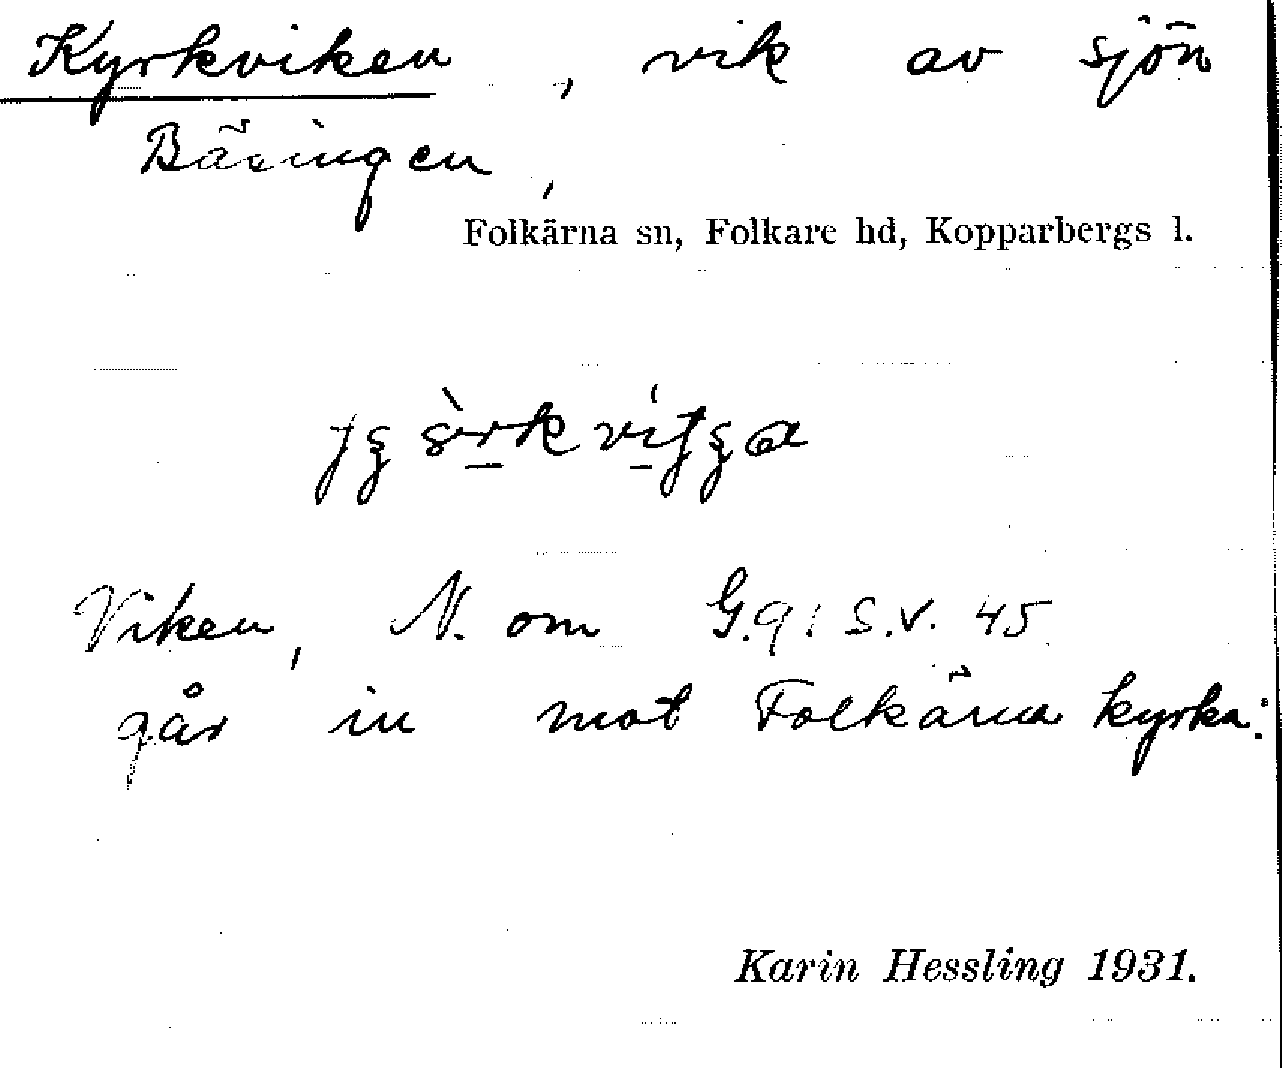 Kyrkviken, vik av sjön
Bäsingen,
Folkärna sn, Folkare hd, Kopparbergs l.
Viken, N. om G.9: S.V. 45
går in mot Folkärna kyrka.
Karin Hessling 1931.